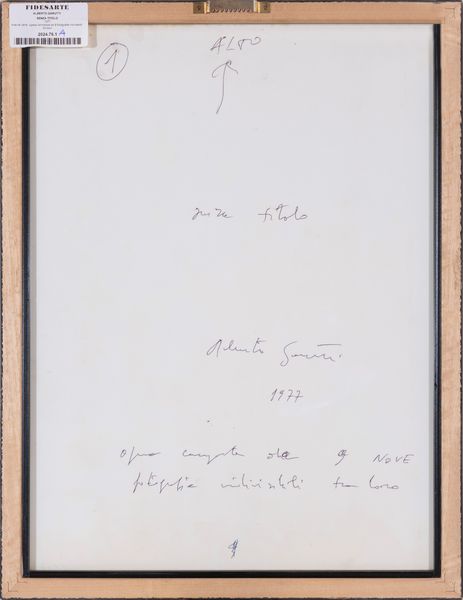 FIDESARTE
ALBERTO GARUTTI
SENZA TITOLO
1977
2024.76.1 A
1
ALTO
senza titolo
Alberto Garutti
1977
opera composta da 9 NOVE
fotografie indivisibili tra loro